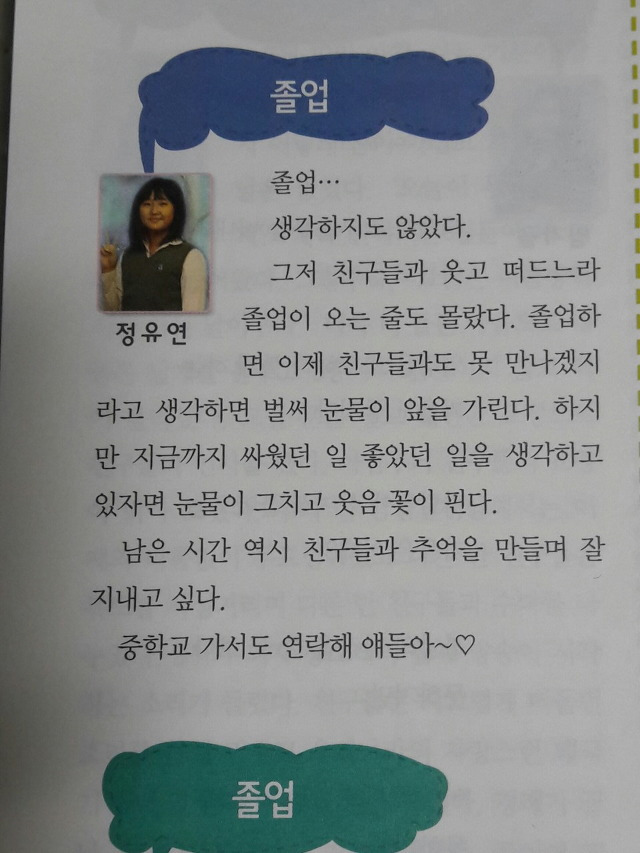 졸업
졸업…
생각하지도 않았다.
그저 친구들과 웃고 떠드느라
졸업이 오는 줄도 몰랐다. 졸업하
면 이제 친구들과도 못 만나겠지
라고 생각하면 벌써 눈물이 앞을 가린다. 하지
만 지금까지 싸웠던 일 좋았던 일을 생각하고
있자면 눈물이 그치고 웃음 꽃이 핀다.
남은 시간 역시 친구들과 추억을 만들며 잘
지내고 싶다.
중학교 가서도 연락해 얘들아~♡
정유연
졸업